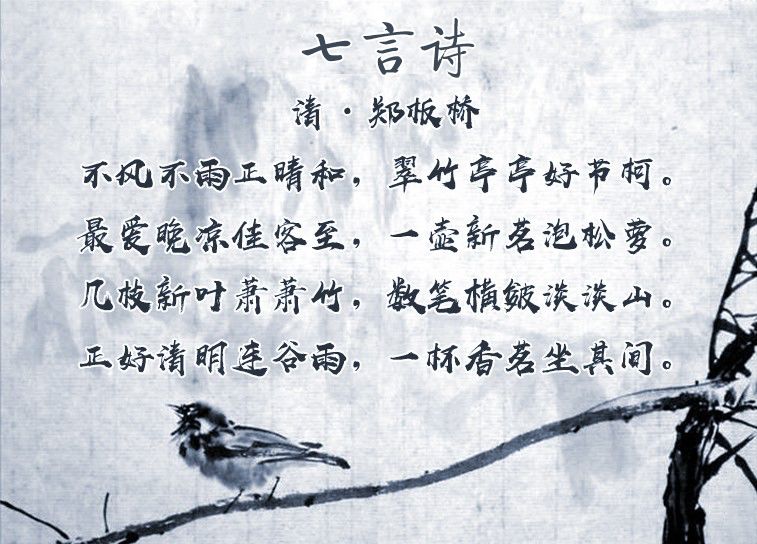 七言诗
清·郑板桥
不风不雨正晴和，翠竹亭亭好节柯。
最爱晚凉佳客至，一壶新茗泡松萝。
几枝新叶萧萧竹，数笔横皴淡淡山。
正好清明连谷雨，一杯香茗坐其间。